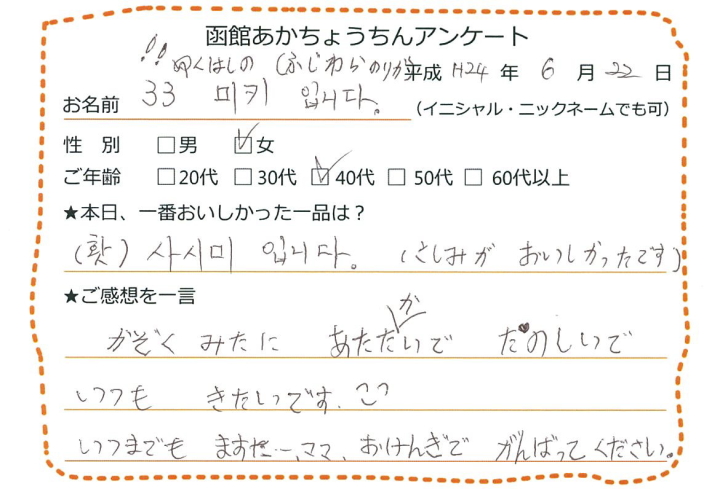 函館あかちょうちんアンケート
!! 叩くはしの (ふじわらのりか
平成 H24 年 6 月 22 日
お名前 33 미키 입니다. (イニシャル・ニックネームでも可)
性 別 □男 ☑女
ご年齢 □20代 □30代 ☑40代 □50代 □60代以上
★本日、一番おいしかった一品は?
사시미 입니다. (さしみが おいしかったです)
★ご感想を一言
がぞく みたに あたたかいで たのしいで
いつも きたいです.
いつまでも ますだ…,ママ、おけんぎで がんばってください。